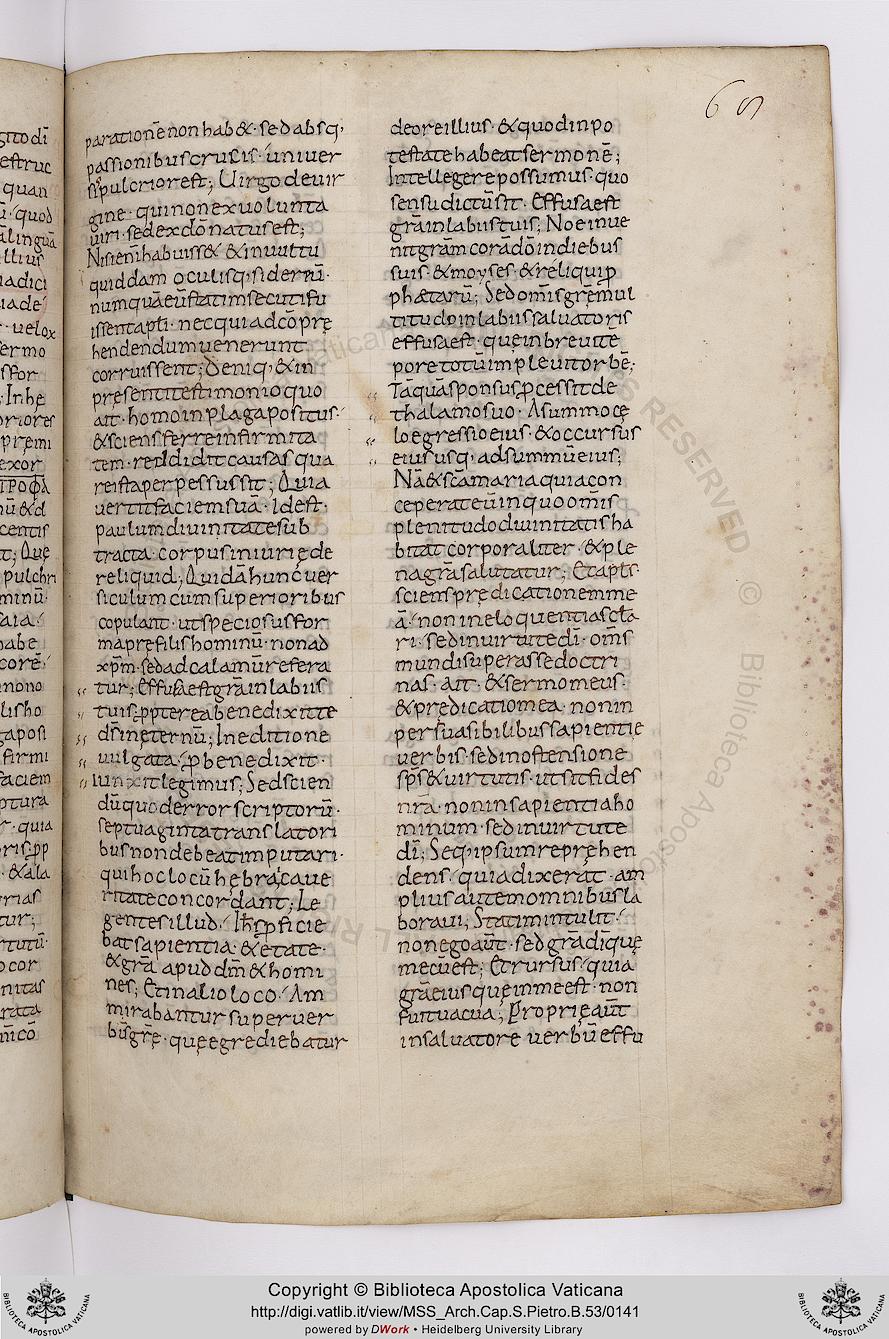 parationē non hab&· sed absq;
passionibus crucis· univer
sis pulcrior est; Uirgo de uir
gine· qui non ex uolunta
uiri· sed ex dō natus est;
Nisi enī habuiss& & in uultu
quiddam oculisq; siderēū·
numquā eū statim secuti fu
issent apłi· nec qui ad cōpre
hendendum uenerunt
corruissent; Deniq; & in
presenti testimonio quo
ait· homo in plaga positus·
& sciens ferre infirmita
tem· reddidit causas qua
re ista perpessus sit; Quia
uertit faciem suā· Id est·
paulum diuinitate sub
tracta· corpus iniurię de
reliquid; Quidā hunc uer
siculum cum superioribus
copulant· ut speciosus for
ma pre filiis hominū· non ad
xp̄m· sed ad calamū refera
tur; Effusa est grā in labiis
tuis· ꝓpterea benedixit te
ds̄ in ęternū; In editione
uulgata· ꝓ benedixit·
unxit legimus; Sed scien
dū quod error scriptorū·
septuaginta translatori
bus non debeat imputari·
qui hoc locū hębraica ue
ritate concordant; Le
gentes illud· Ihs̄ ꝓficie
bat sapientia· & ętate·
& grā apud dm̄ & homi
nes; Et in alio loco· Am
mirabantur super uer
bis grę· quę egrediebatur
de ore illius· & quod in po
testate habeat sermonē;
Intellegere possumus· quo
sensu dictū sit· Effusa est
grā in labiis tuis; Noe inue
nit grām corā dō in diebus
suis· & moyses· & reliqui ꝓ
phætarū; Sed om̄is gręmul
titudo in labiis saluatoris
effusa est· que in breui tē
pore totū impleuit orbē;
Tāquā sponsus ꝓcessit de
thalamo suo· A summo cę
lo egressio eius· & occursus
eius usq; ad summū eius;
Nā & scā maria quia con
ceperat eū in quo om̄is
plenitudo diuinitatis ha
bitat corporaliter· & ple
na grā salutatur; Et apłs·
sciens prędicationem me
ā· non in eloquentiasclā
ri· sed in uirtute dī· om̄s
mundi superasse doctri
nas· ait· & sermo meus·
& predicatio mea· non in
persuasibilibus sapientię
uerbis· sed in ostensione
sps̄ & uirtutis· ut sit fides
nrā· non in sapientia ho
minum· sed in uirtute
dī; Seq; ipsum reprehen
dens· quia dixerāt· am
plius autem omnibus la
boraui; Statim intulit·
non ego aūt· sed grā dī quę
mecū est; Et rursus· quia
grā eius quę in me est· non
fuit uacua; Proprię aūt
in saluatore uerbū effu
68
Copyright © Biblioteca Apostolica Vaticana
http://digi.vatlib.it/view/MSS_Arch.Cap.S.Pietro.B.53/0141
powered by DWork • Heidelberg University Library